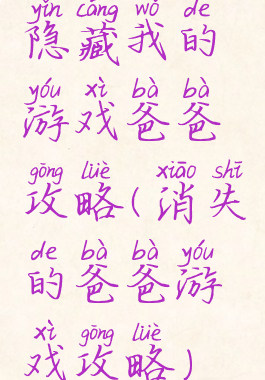 yǐn cáng wǒ de
隐藏我的
yóu xì bà bà
游戏爸爸
gōng lüè xiāo shī
攻略(消失
de bà bà yóu
的爸爸游
xì gōng lüè
戏攻略)